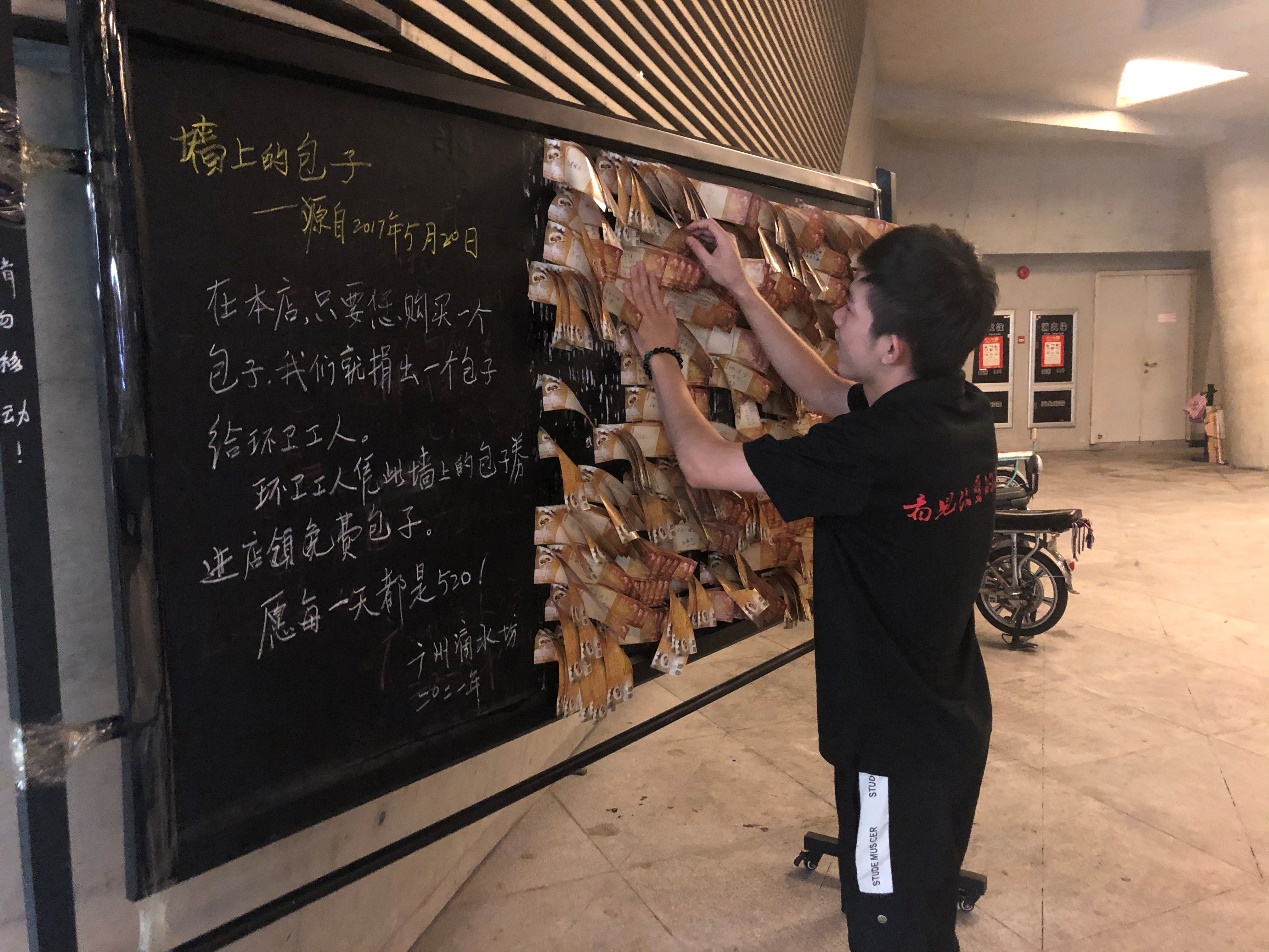 肯
勿
移
动
！
墙上的包子
—源自2017年5月20日
在本店,只要您购买一个
包子.我们就捐出一个包子
给环卫工人。
环卫工人凭此墙上的包子券
进店领免费包子。
愿每一天都是520!
广州滴水坊
二〇二一年
STUDE MUSCER
STUD